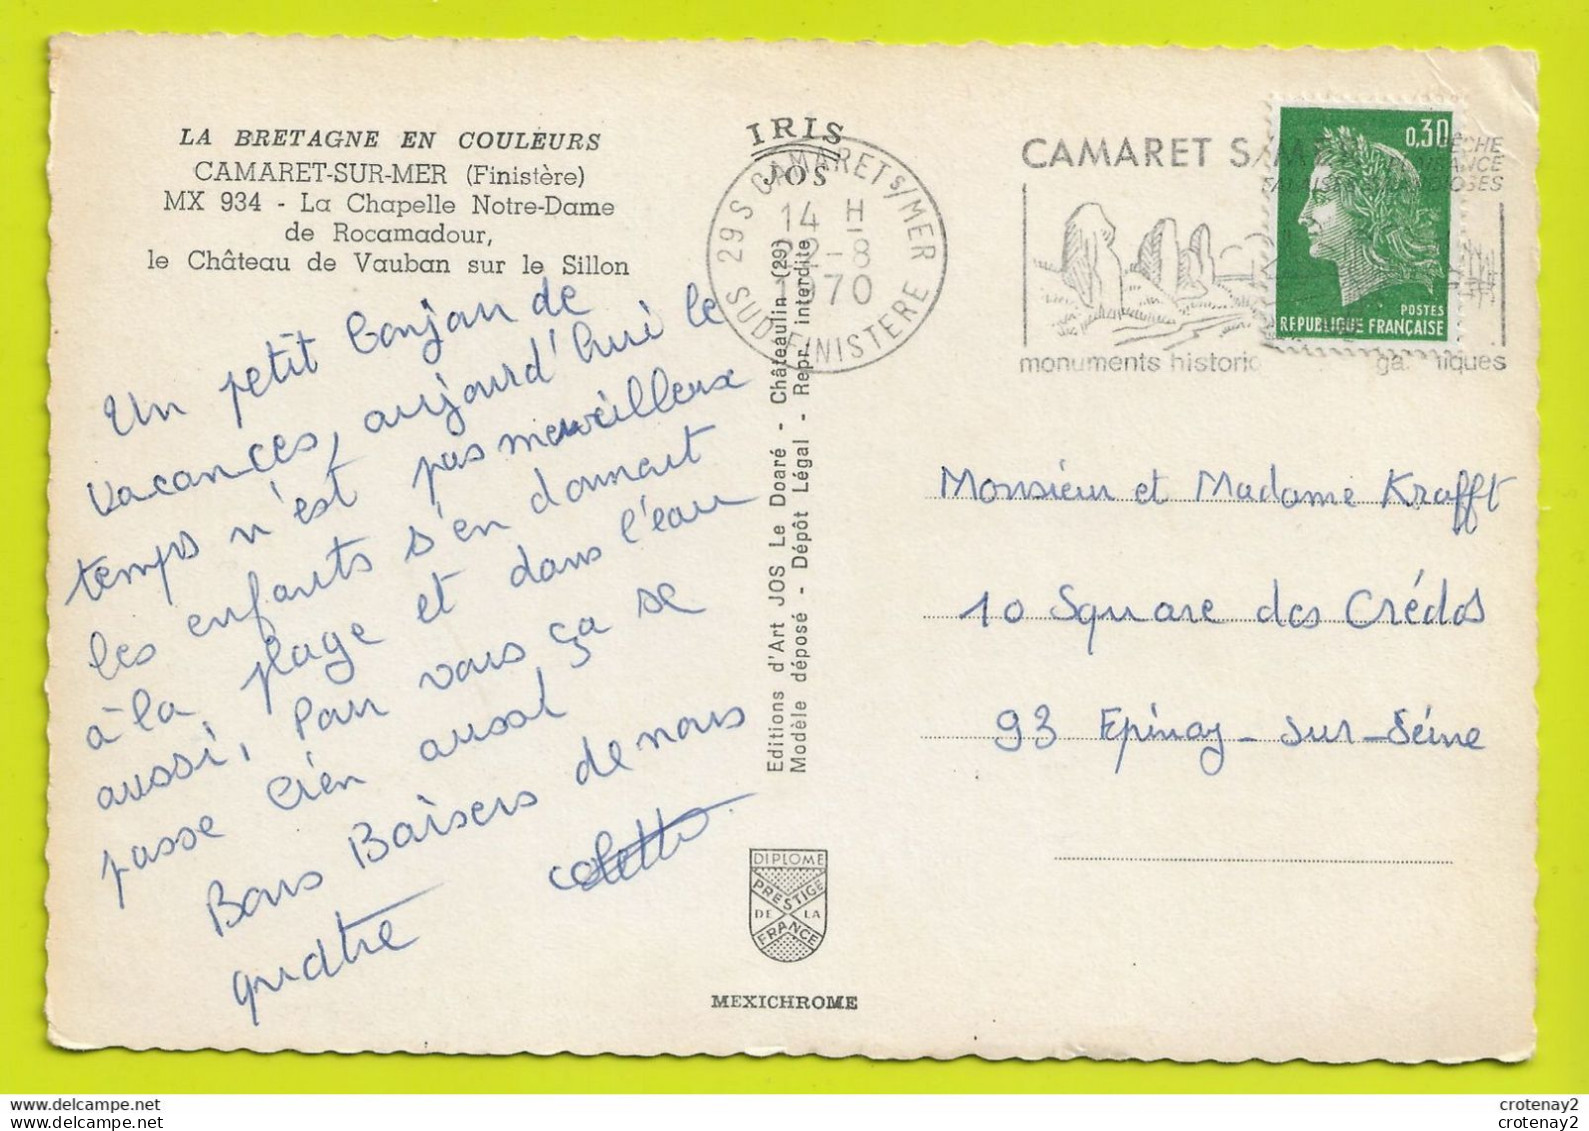 LA BRETAGNE EN COULEURS
CAMARET-SUR-MER (Finistère)
MX 934 - La Chapelle Notre-Dame
de Rocamadour,
le Château de Vauban sur le Sillon
Un petit bonjour de
vacances, aujourd'hui le
temps n'est pas merveilleux
les enfants s'en donnent
à la plage et dans l'eau
aussi, Pour vous ça se
passe bien aussi
Bons Baisers de nous
quatre Colette
IRIS
JOS
29S CAMARET S/MER
14 H
22-8
1970
SUD-FINISTERE
Editions d'Art JOS Le Doaré - Châteaulin (29)
Modèle déposé - Dépôt Légal - Repr. interdite
DIPLOME
PRESTIGE
DE LA
FRANCE
MEXICHROME
CAMARET S/MER
monuments
0,30
POSTES
REPUBLIQUE FRANÇAISE
Monsieur et Madame Krafft
10 Square des Crédos
93 Epinay-sur-Seine
crotenay2
crotenay2